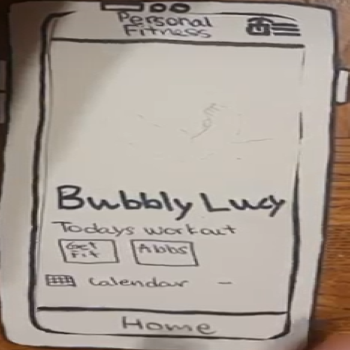 Personal
Fitness
Bubbly Lucy
Todays workout
Get
Fit
Abbs
Calendar
Home